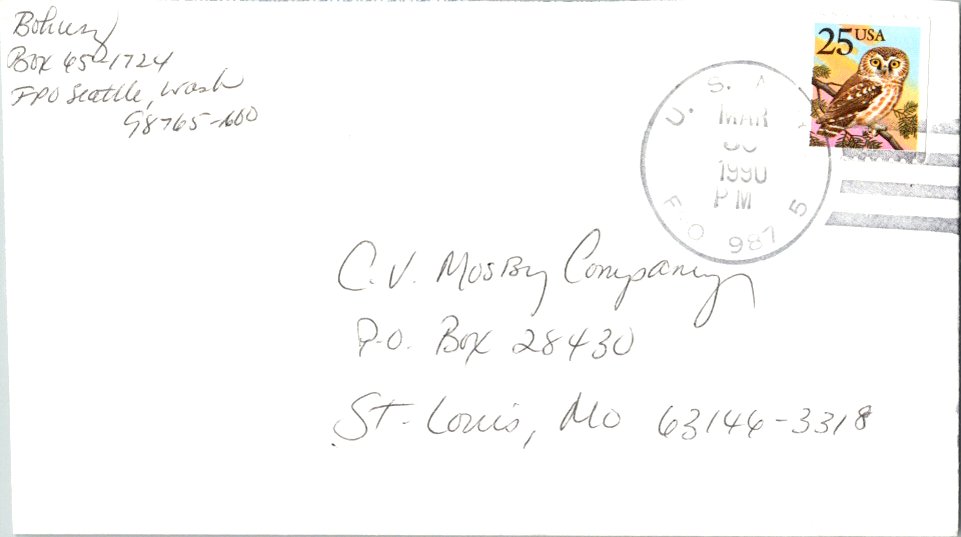 Box 65-1724
FPO Seattle, Wash
98765-
25 USA
U. S.
MAR
1990
PM
C.V. Mosby Company
P.O. Box 28430
St. Louis, Mo 63146-3318